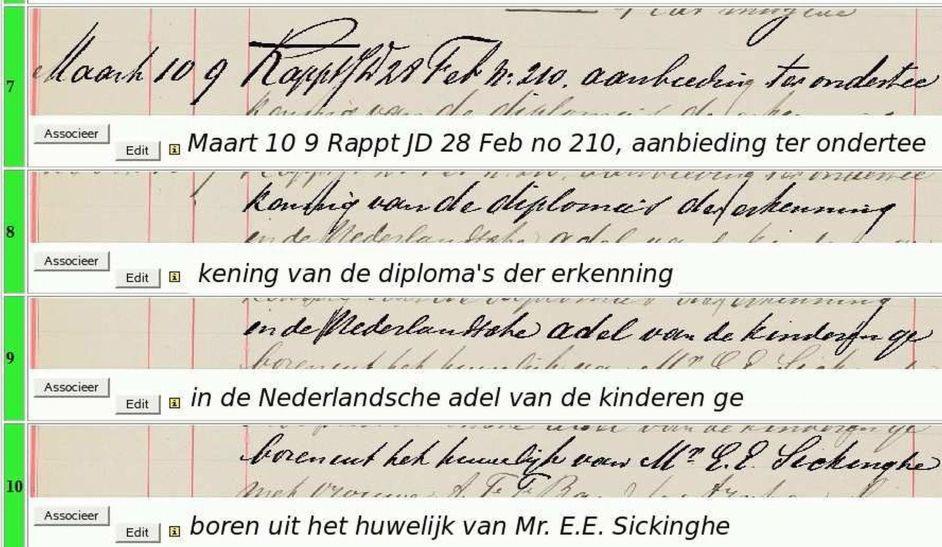 7
Maart 10 9 Rappt JD 28 Feb no 210. aanbieding ter ondertee
Associeer
Edit
Maart 10 9 Rappt JD 28 Feb no 210, aanbieding ter ondertee
8
kening van de diploma's der erkenning
Associeer
Edit
kening van de diploma's der erkenning
9
in de Nederlandsche adel van de kinderen ge
Associeer
Edit
in de Nederlandsche adel van de kinderen ge
10
boren uit het huwelijk van Mr. E.E. Sickinghe
Associeer
Edit
boren uit het huwelijk van Mr. E.E. Sickinghe